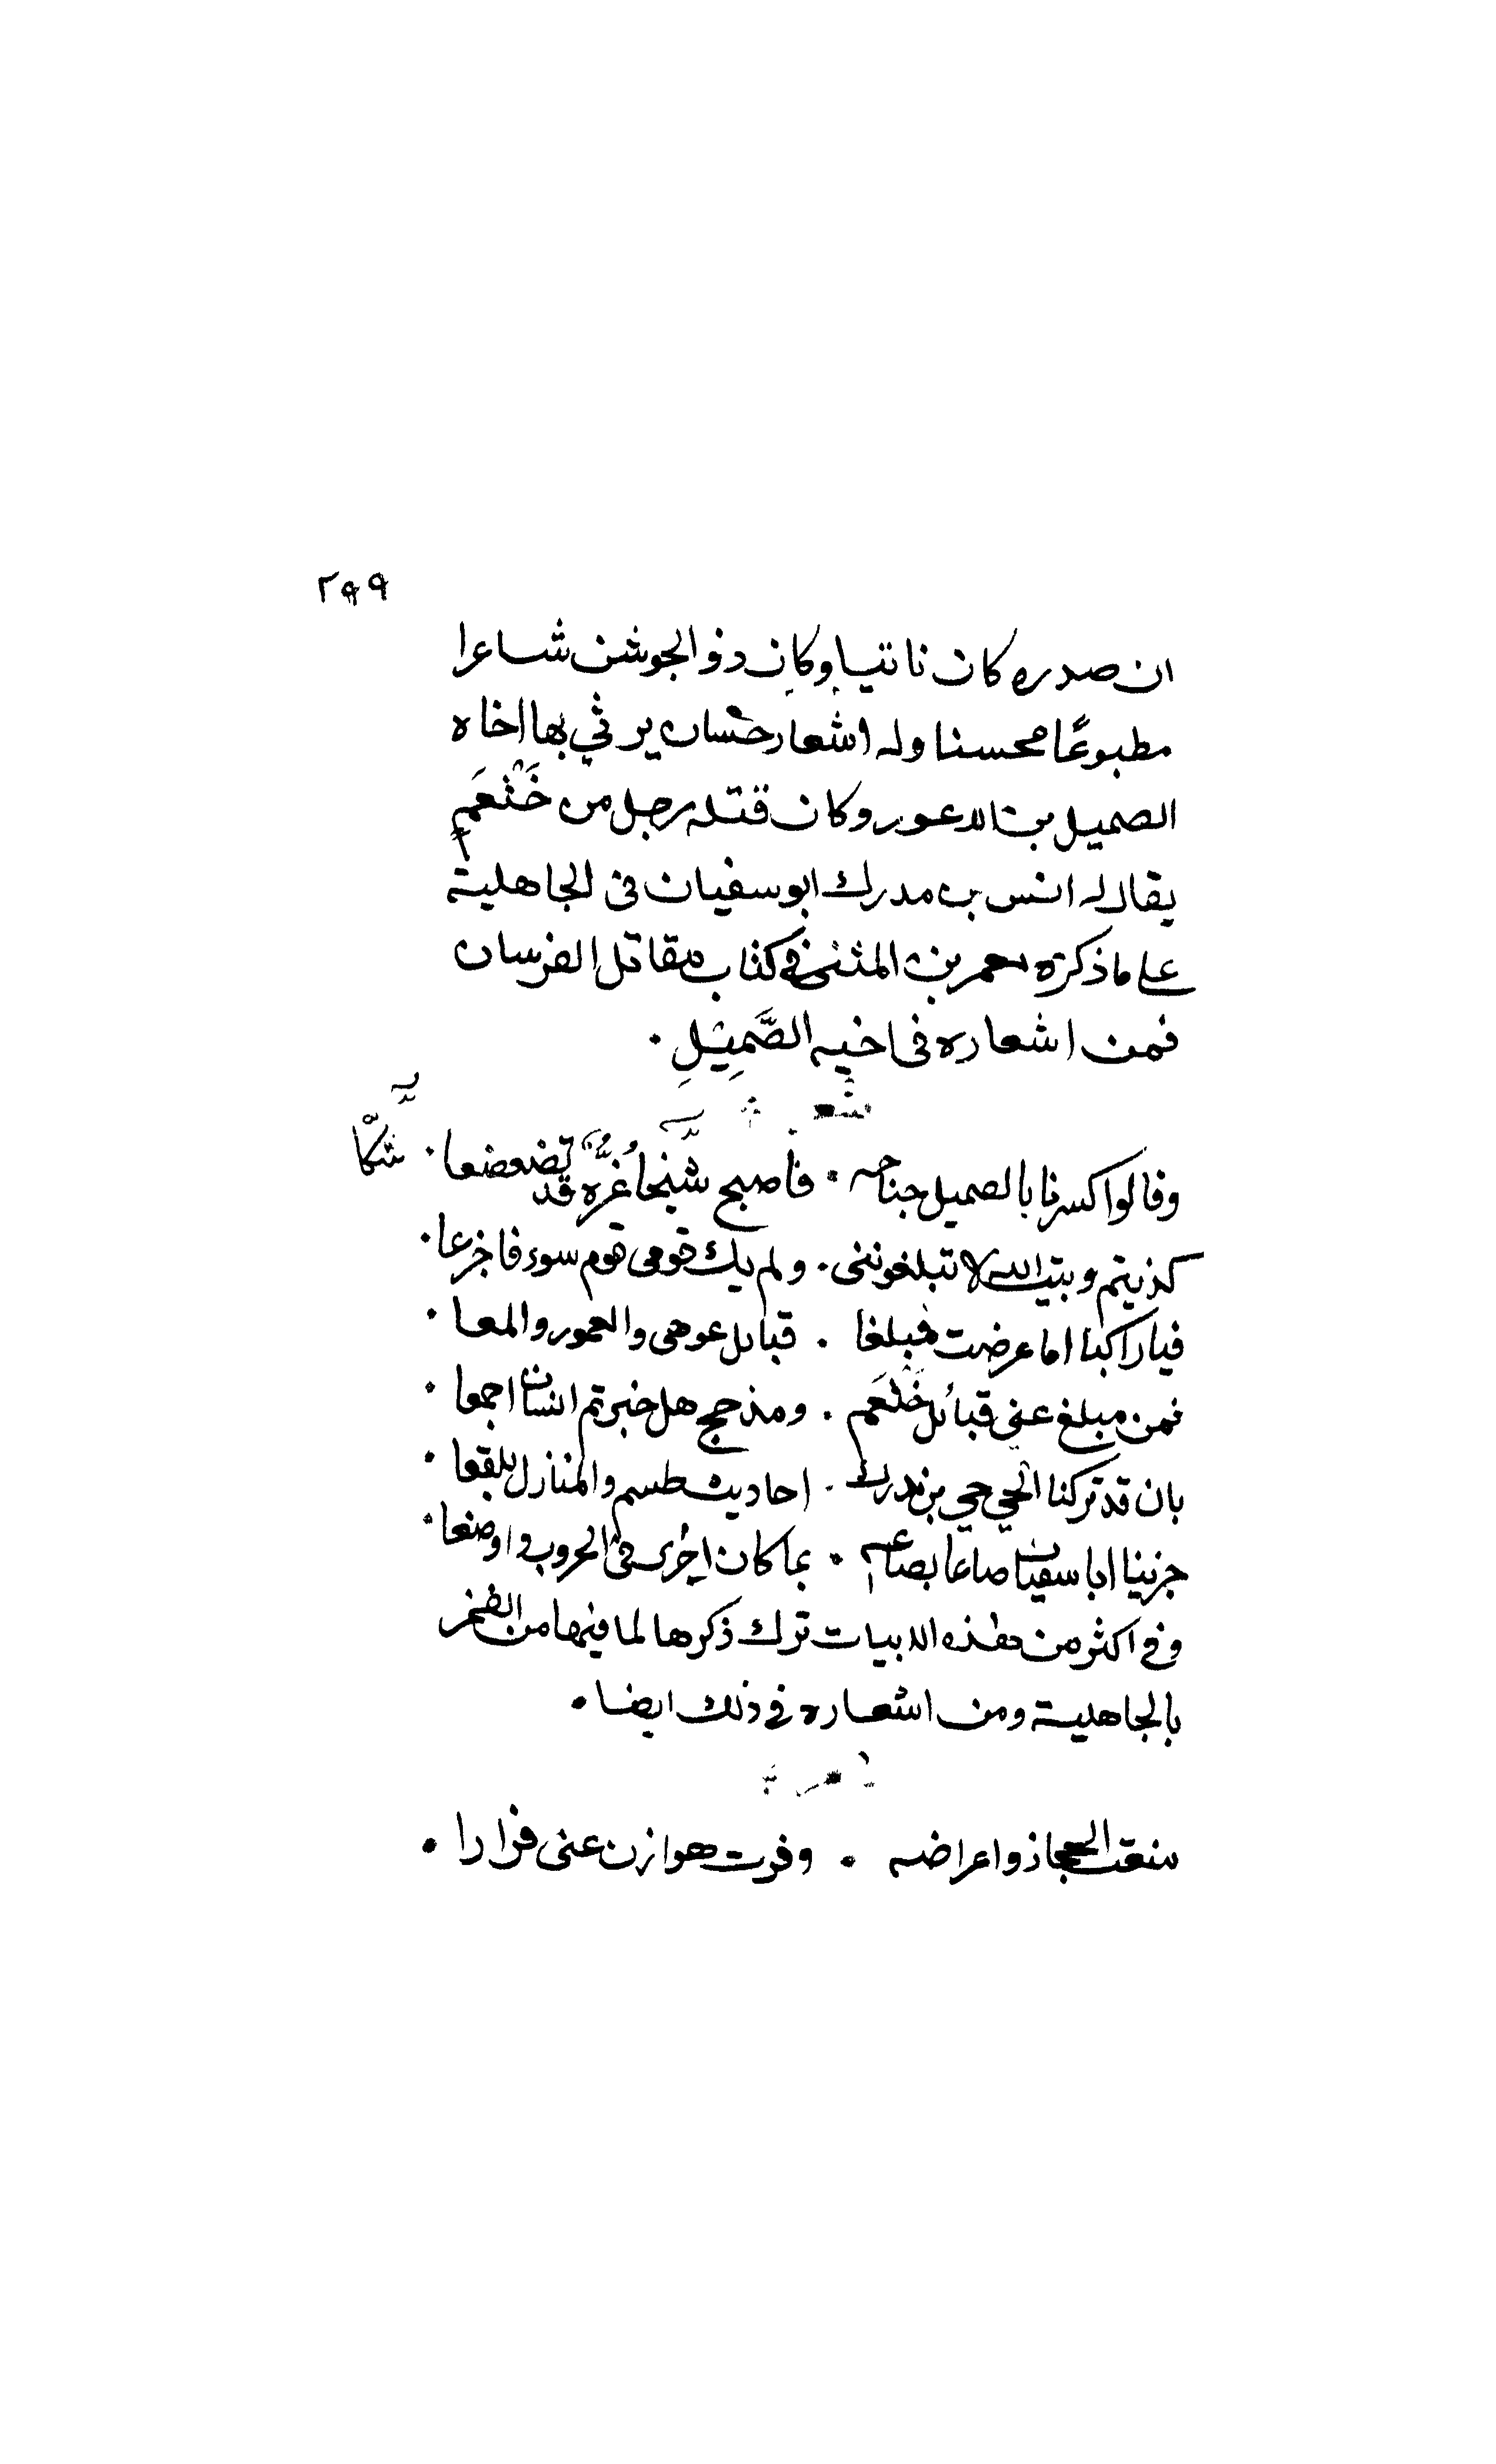 ٢٩٩
ان صدره كان ناتيا وكان ذو الجوشن شاعرا
مطبوعًا محسنا وله اشعار حسان يرثي بها اخاه
الصميل بن الاعور وكان قتله رجل من خَثْعَم
يقال له انس بن مدرك ابو سفيان في الجاهلية
على ما ذكره معمر بن المثنى في كتاب مقاتل الفرسان
فمن اشعاره في اخيه الصَّمِيْلِ .
شعر
وقالوا كسرنا بالصميل جناحه . فأصبح شيخا عُزُّه قد تضعضعا .
كذبتم وبيت الله لا تبلغونني . ولم يك قومي قوم سوء فاجزعا .
فيا راكبا اما عرضت فبلغا . قبائل عوهى والعمور والمعا .
فمن مبلغ عني قبائل خَثْعَم . ومذحج هل خبرتم الشان اجمعا .
بان قد تركنا الحي حي بن مدرك . احاديث طسم والمنازل بلقعا .
جزينا ابا سفيان صاعا بصاعه . بما كان اجرى في الحروب واوضعا .
وفي اكثر من هذه الابيات ترك ذكرها لما فيها من الفخر
بالجاهلية ومن اشعاره في ذلك ايضا .
منعت الحجاز واعراضه . وفرت هوازن عني فرارا .